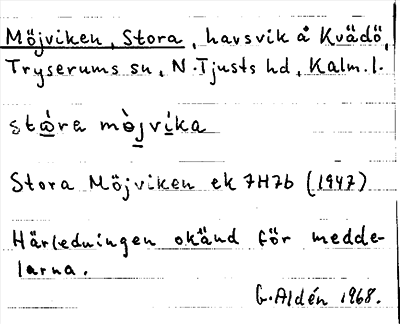 Möjviken, Stora, havsvik å Kvädö,
Tryserums sn, N. Tjusts hd, Kalm. l.
stὼ̲ra mò̲jví̲ka
Stora Möjviken ek 7H7b (1947)
Härledningen okänd för medde-
larna.
G. Aldén 1968.